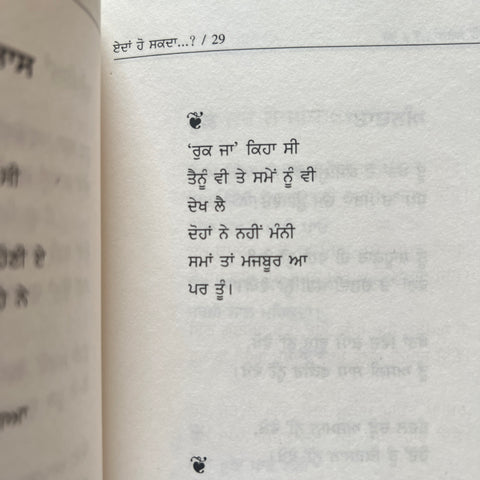 ਏਦਾਂ ਹੋ ਸਕਦਾ...? / 29
'ਰੁਕ ਜਾ' ਕਿਹਾ ਸੀ
ਤੈਨੂੰ ਵੀ ਤੇ ਸਮੇਂ ਨੂੰ ਵੀ
ਦੇਖ ਲੈ
ਦੋਹਾਂ ਨੇ ਨਹੀਂ ਮੰਨੀ
ਸਮਾਂ ਤਾਂ ਮਜਬੂਰ ਆ
ਪਰ ਤੂੰ।